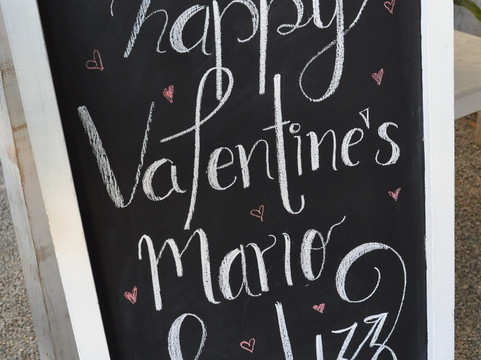 happy
Valentine's
Mario